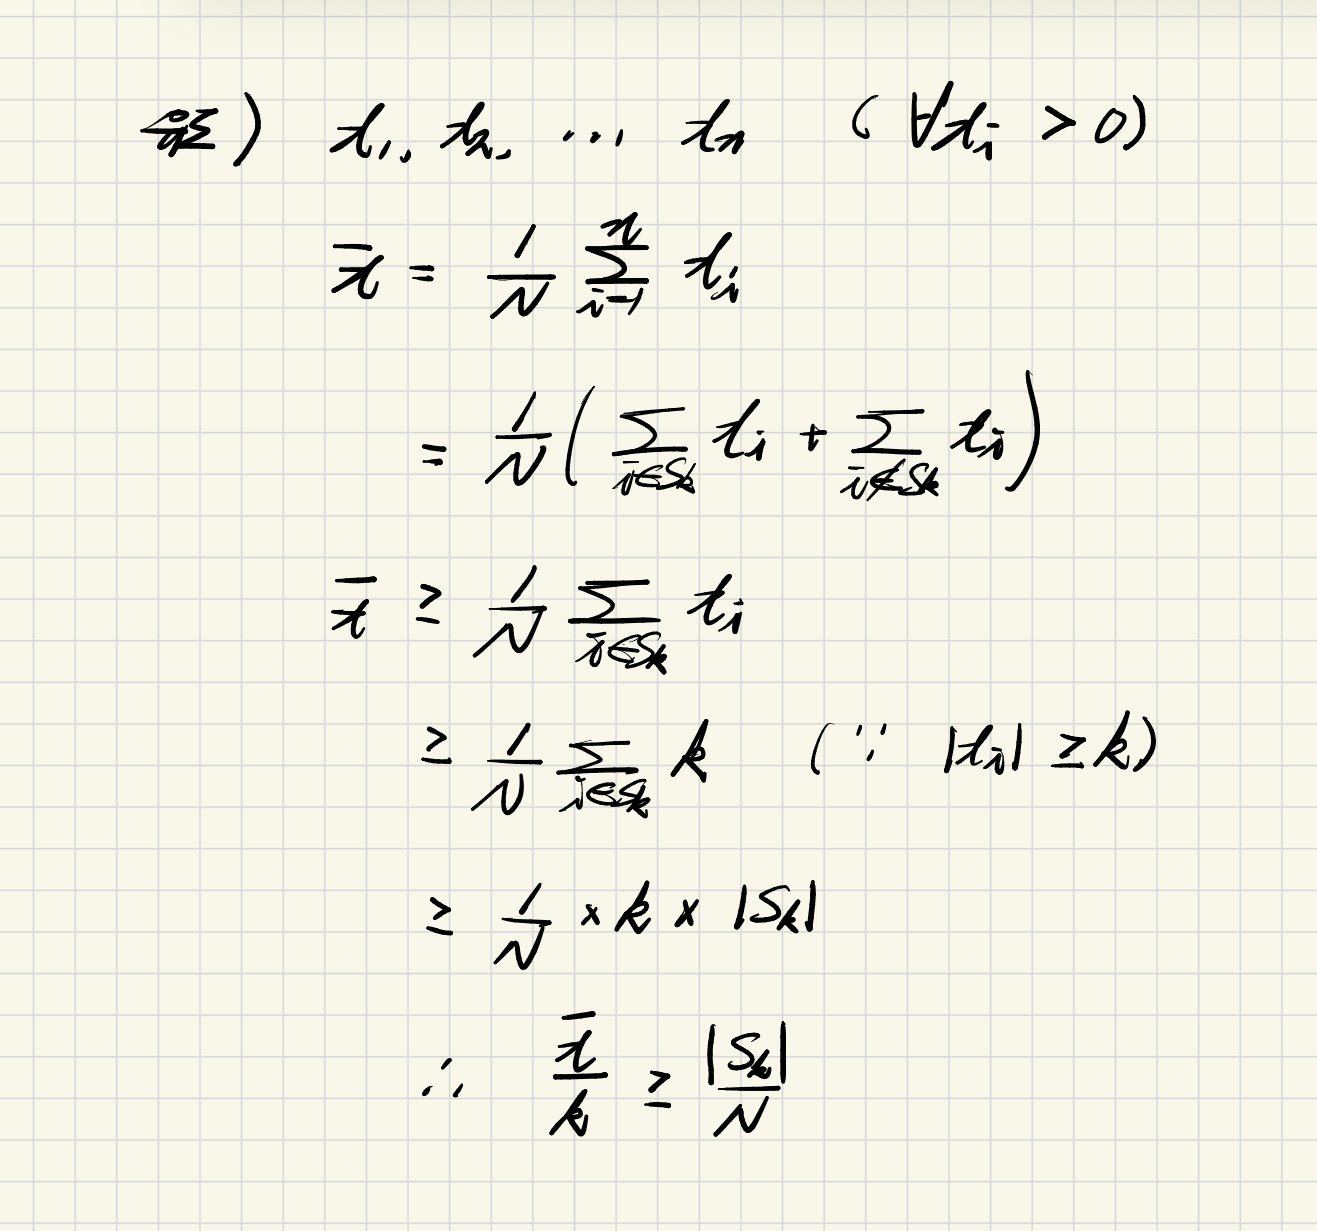 x₁, x₂, ⋯ xₙ (∀xᵢ > 0)
x̄ = 1/N Σ_{i=1}^{n} xᵢ
= 1/N ( Σ_{i∈Sₖ} xᵢ + Σ_{i∉Sₖ} xᵢ )
x̄ ≥ 1/N Σ_{i∈Sₖ} xᵢ
≥ 1/N Σ_{i∈Sₖ} k (∵ |xᵢ| ≥ k)
≥ 1/N × k × |Sₖ|
∴ x̄/k ≥ |Sₖ|/N